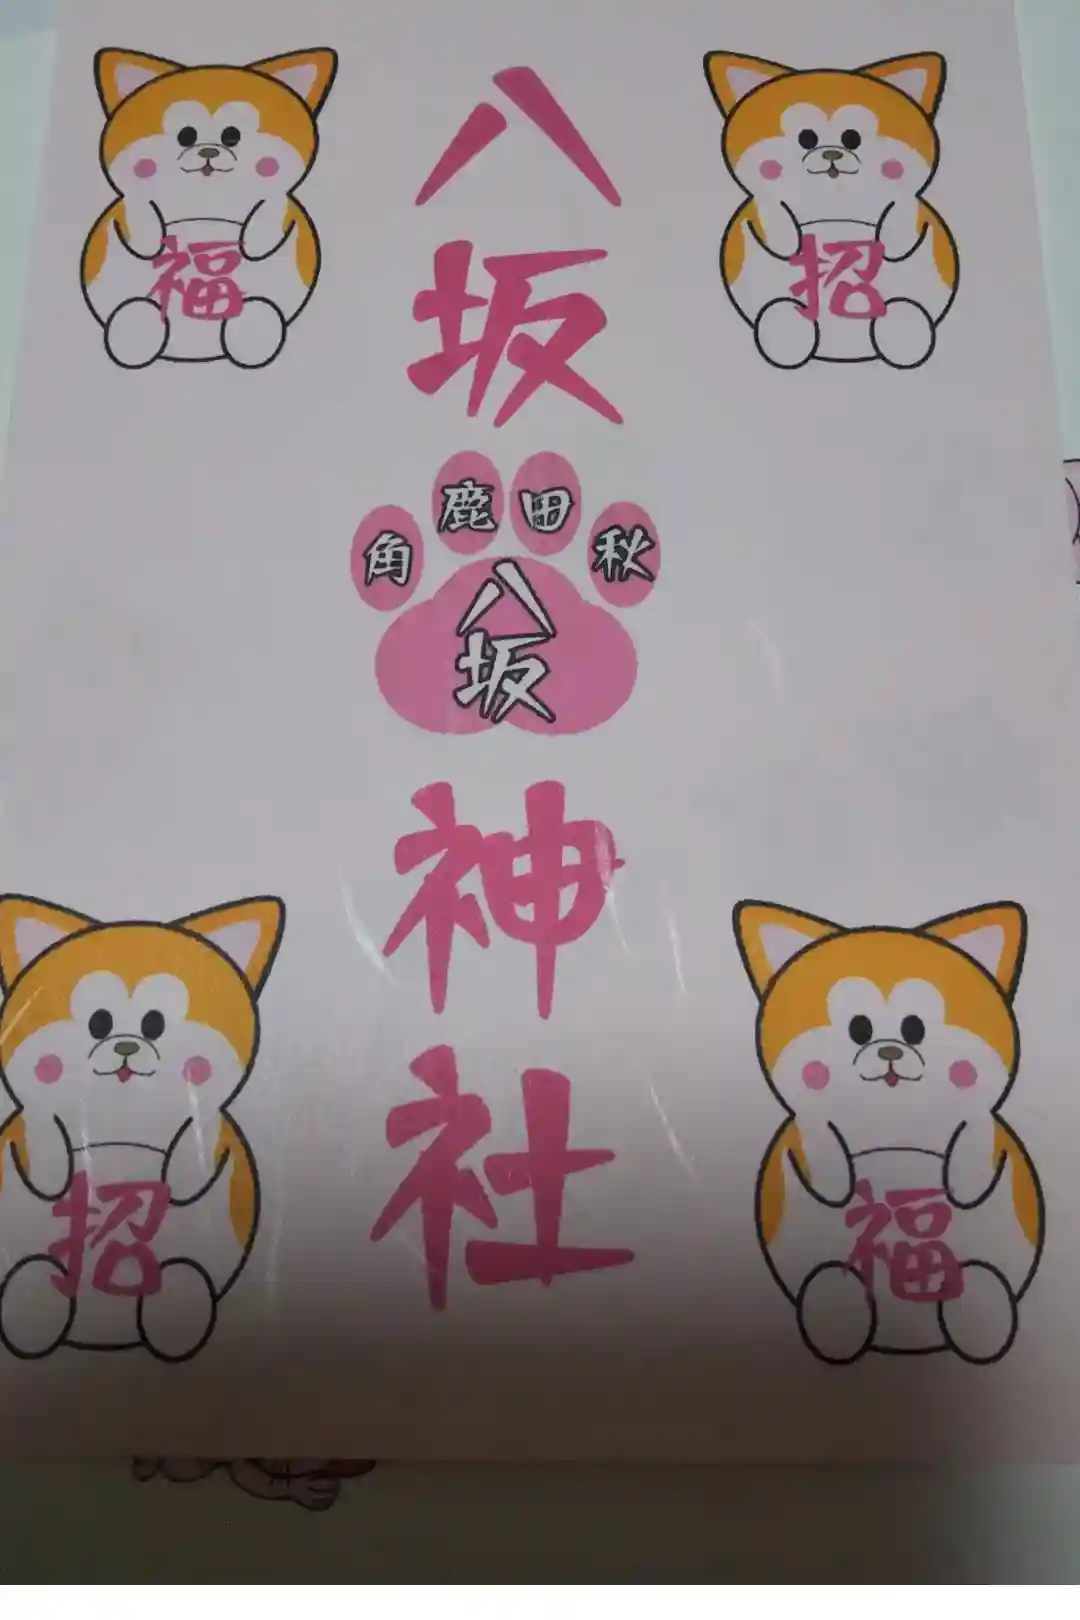 福
招
八坂神社
角鹿田秋
八坂
招
福